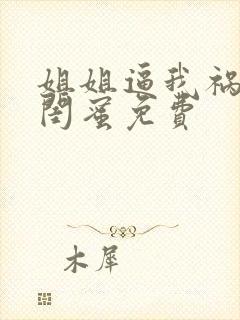 姐姐逼我祸
闺蜜免费
木犀